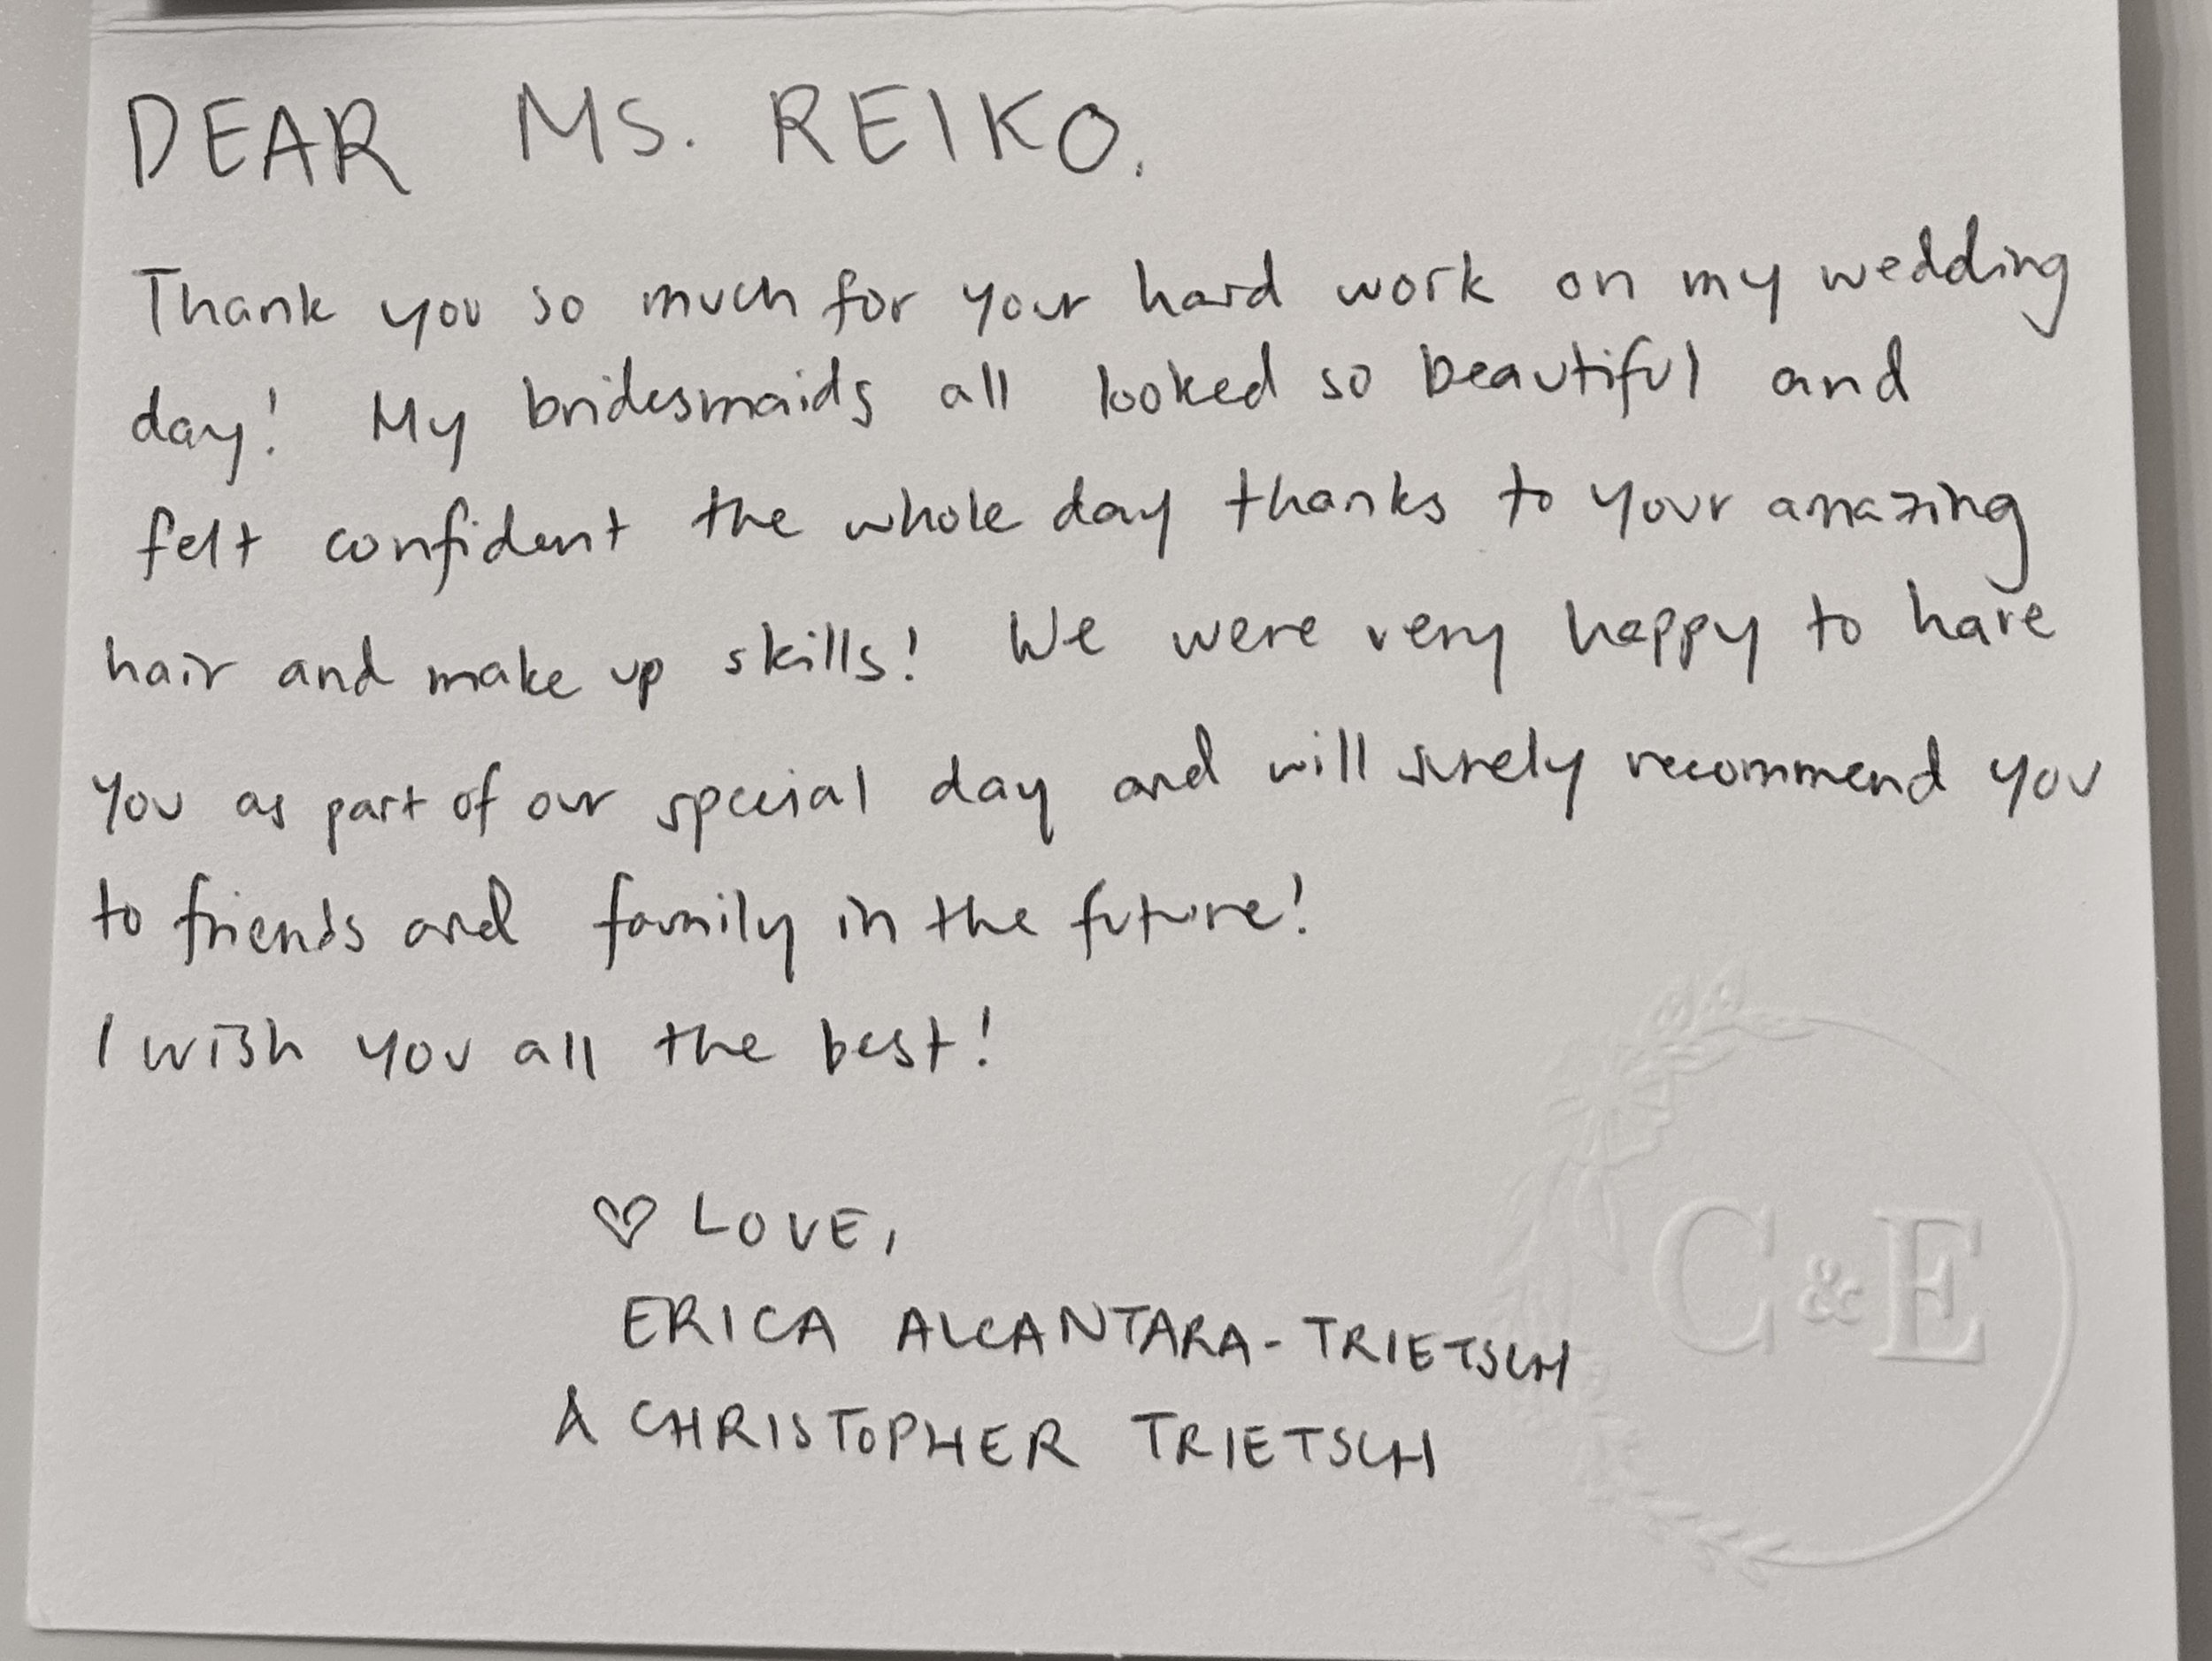 DEAR MS. REIKO,
Thank you so much for your hard work on my wedding
day! My bridesmaids all looked so beautiful and
felt confident the whole day thanks to your amazing
hair and make up skills! We were very happy to have
you as part of our special day and will surely recommend you
to friends and family in the future!
I wish you all the best!
♡ LOVE,
ERICA ALCANTARA-TRIETSCH
& CHRISTOPHER TRIETSCH
C&E